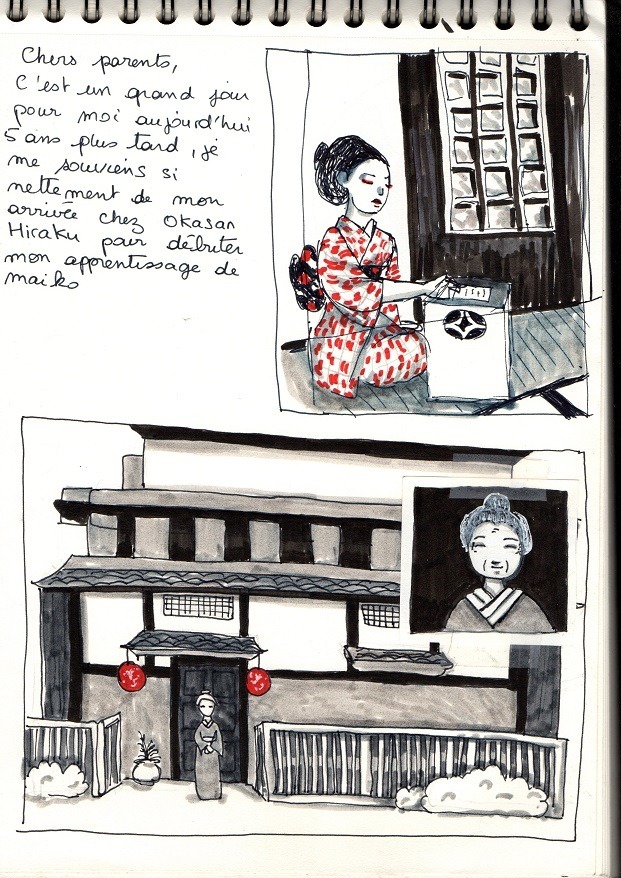 Chers parents,
C'est un grand jour
pour moi aujourd'hui
5 ans plus tard, je
me souviens si
nettement de mon
arrivée chez Okasan
Hiraku pour débuter
mon apprentissage de
maiko